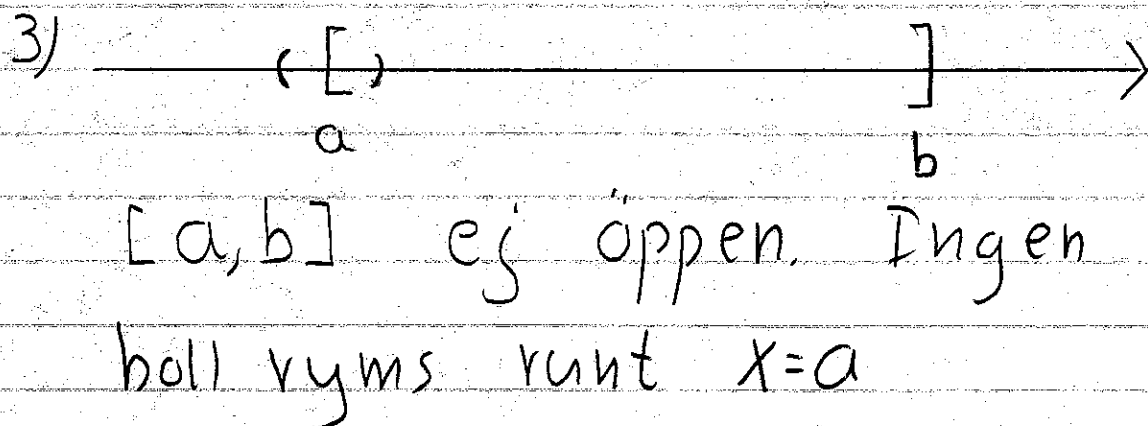 3)
( [ ) ]
a b
[a,b] ej öppen. Ingen
boll ryms runt x=a